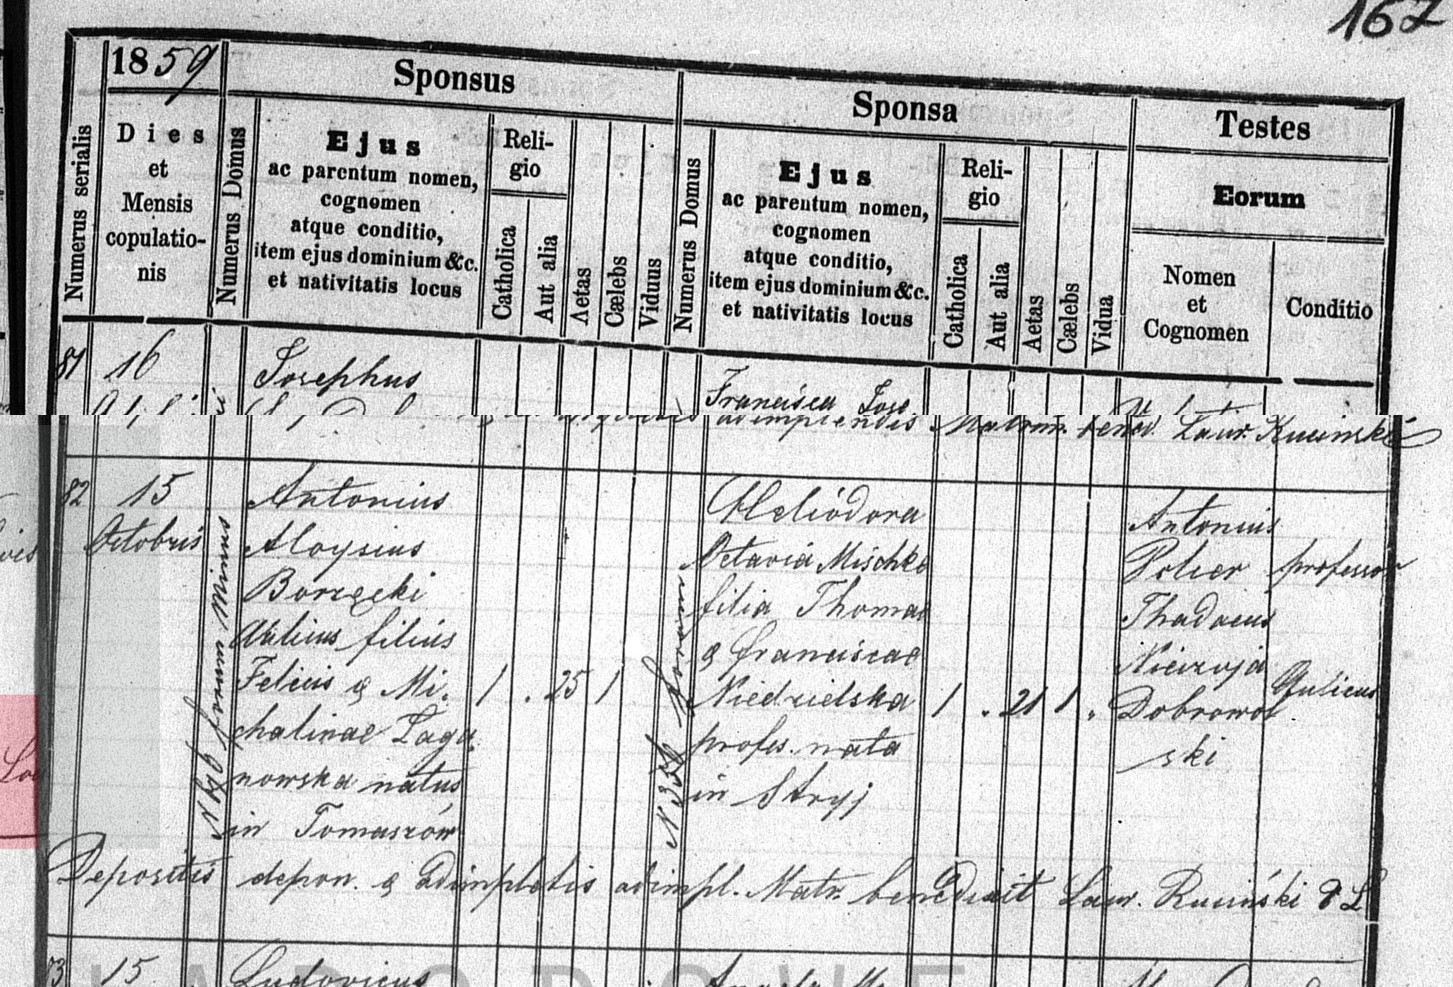 167
1859
Sponsus
Sponsa
Testes
Numerus serialis
Dies
et
Mensis
copulatio-
nis
Numerus Domus
Ejus
ac parentum nomen,
cognomen
atque conditio,
item ejus dominium &c.
et nativitatis locus
Reli-
gio
Catholica
Aut alia
Aetas
Cælebs
Viduus
Numerus Domus
Ejus
ac parentum nomen,
cognomen
atque conditio,
item ejus dominium &c.
et nativitatis locus
Reli-
gio
Catholica
Aut alia
Aetas
Cælebs
Vidua
Eorum
Nomen
et
Cognomen
Conditio
81
16
Josephus
Francisca Jose
adimplendis Matrim. bened. Laur. Kucinski
82
15
Octobris
forum Minus
Antonius
Aloysius
Borzęcki
filius
Felicis & Mi.
chalinae Łagu
nowska natus
in Tomaszów
1 . 25 1
N 356
Heliodora
Octavia Mischke
filia Thomae
& Franciscae
Niedzielska
profes. nata
in Stryj
1 . 21 1 .
Antonius
Polier professor
Thadaeus
Nieczuja
Dobrowol
ski
Depositis depon. & adimpletis adimpl. Matr. benedixit Laur. Ruciński
73
15
Ludovicus